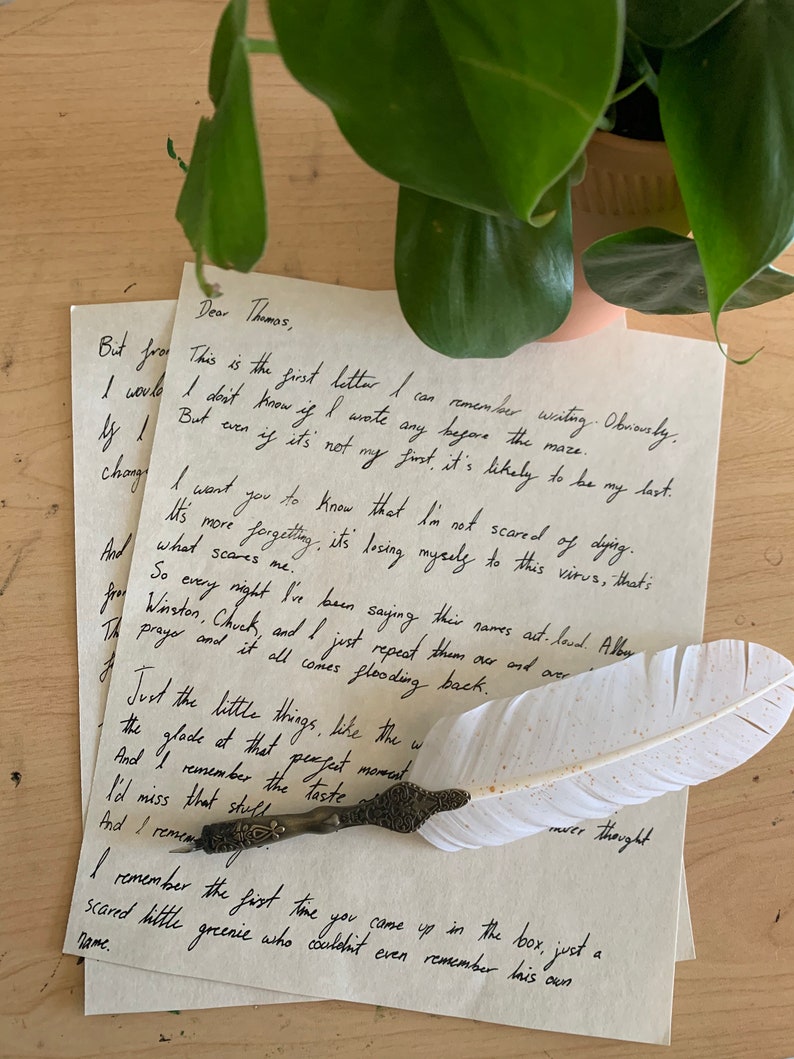 Dear Thomas,
This is the first letter I can remember writing. Obviously,
I don't know if I wrote any before the maze.
But even if it's not my first, it's likely to be my last.
I want you to know that I'm not scared of dying.
It's more forgetting, it's losing myself to this virus, that's
what scares me.
So every night I've been saying their names out loud. Alby
Winston, Chuck, and I just repeat them over and over
prayer and it all comes flooding back.
Just the little things, like the w
the glade at that perfect moment
And I remember the taste
I'd miss that stuff never thought
And I remem
I remember the first time you came up in the box, just a
scared little greenie who couldn't even remember his own
name.
But fro
I woul
If I
chang
And
fro
Th
f